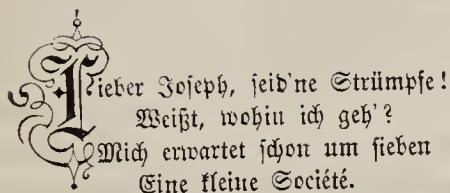 Lieber Joseph, seid'ne Strümpfe!
Weißt, wohin ich geh'?
Mich erwartet schon um sieben
Eine kleine Société.